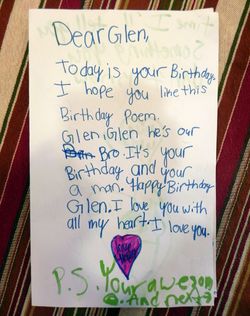 Dear Glen,
Today is your Birthday.
I hope you like this
Birthday Poem.
Glen Glen he's our
Bro. It's your
Birthday and your
a man. Happy Birthday
Glen. I love you with
all my heart. I love you.
P.S. Your awesom
And